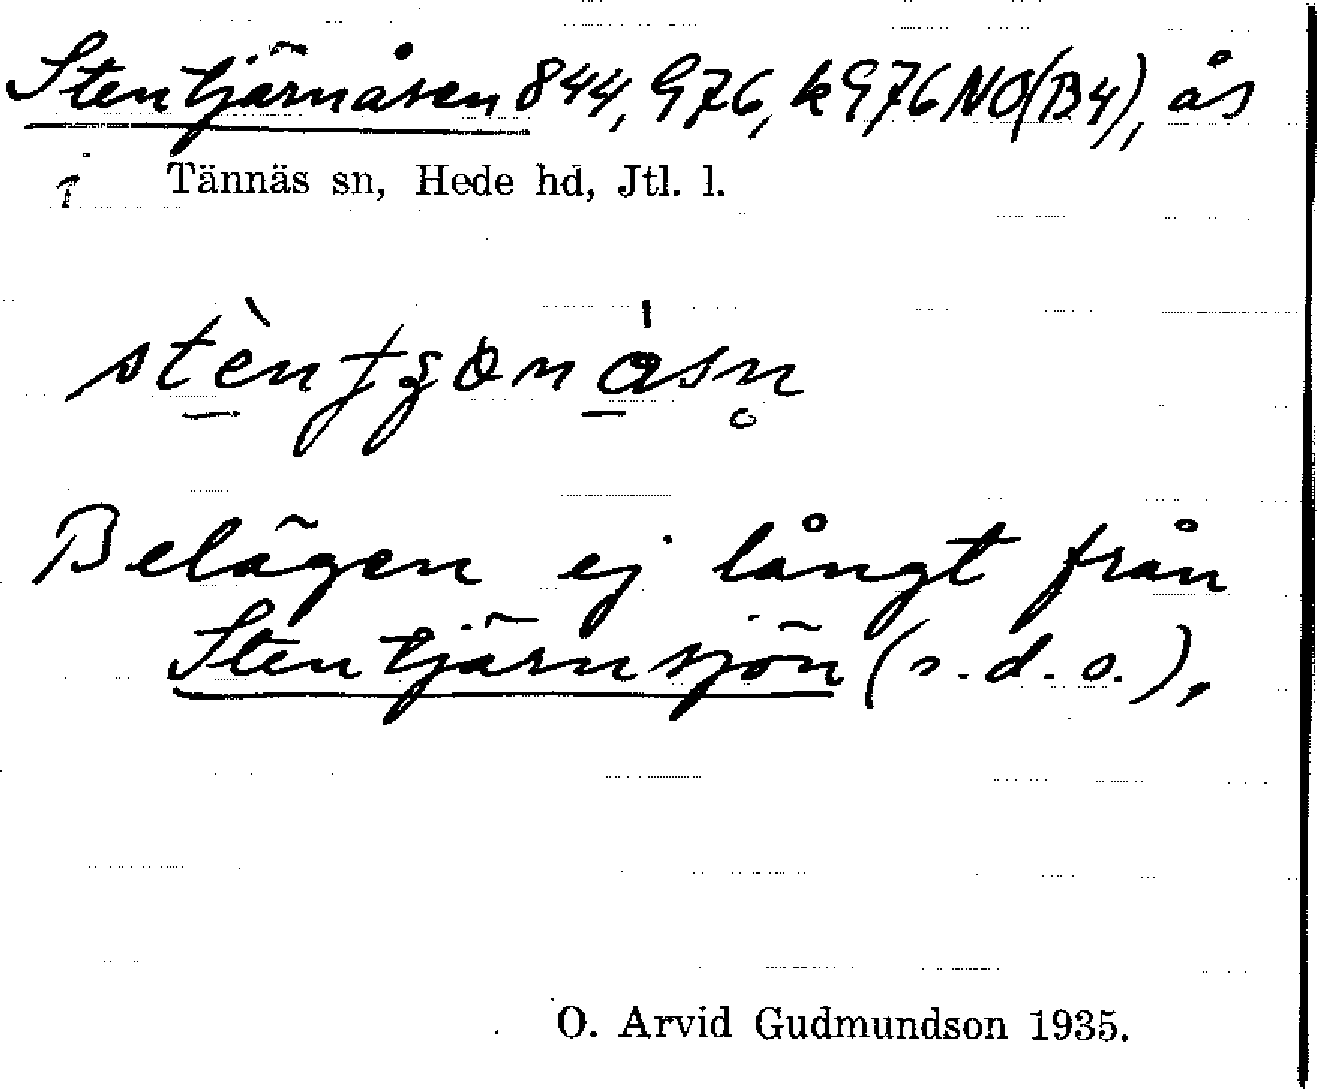 Stentjärnåsen 844, G76, k G76 NO (B4), ås
i Tännäs sn, Hede hd, Jtl. l.
Belägen ej långt från
Stentjärnsjön (s.d.o.),
O. Arvid Gudmundson 1935.